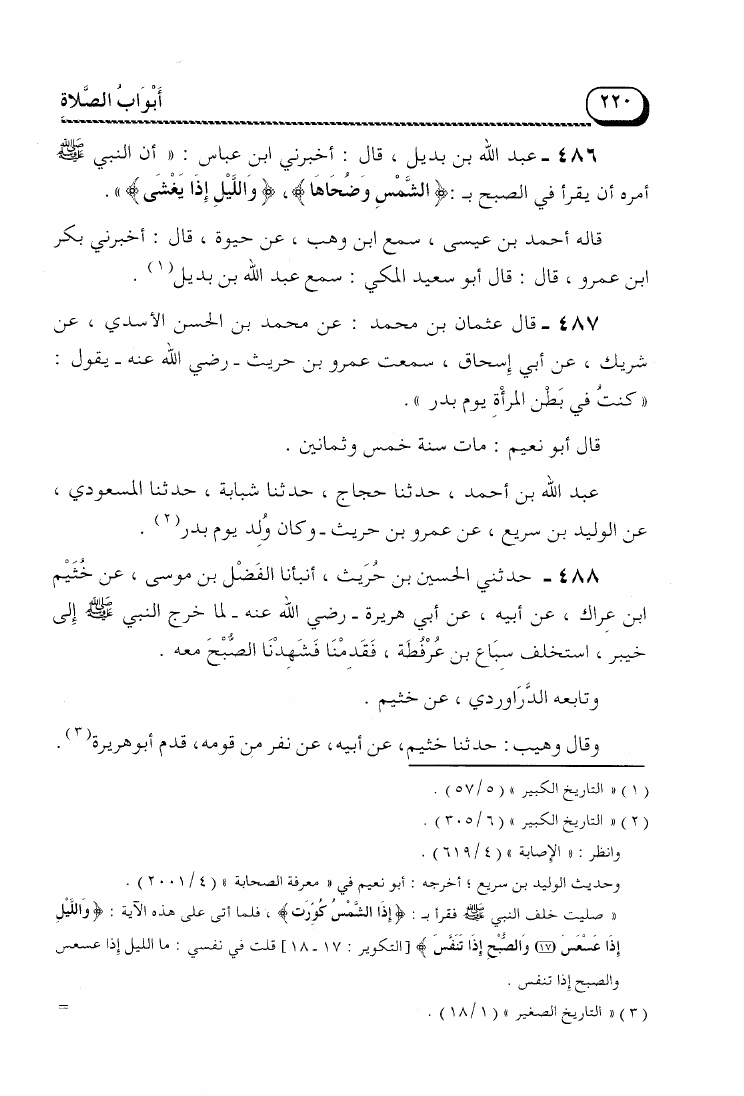 ٢٢٠
أَبْوَابُ الصَّلاة
٤٨٦ ـ عبد الله بن بديل ، قال : أخبرني ابن عباس : « أن النبي ﷺ
أمره أن يقرأ في الصبح بـ :﴿ الشَّمْسِ وَضُحَاهَا ﴾، ﴿ وَاللَّيْلِ إِذَا يَغْشَى ﴾ » .
قاله أحمد بن عيسى ، سمع ابن وهب ، عن حيوة ، قال : أخبرني بكر
ابن عمرو ، قال : قال أبو سعيد المكي : سمع عبد الله بن بديل(١) .
٤٨٧ ـ قال عثمان بن محمد : عن محمد بن الحسن الأسدي ، عن
شريك ، عن أبي إسحاق ، سمعت عمرو بن حريث ـ رضي الله عنه ـ يقول :
« كنتُ في بَطْنِ المرأة يوم بدر » .
قال أبو نعيم : مات سنة خمس وثمانين .
عبد الله بن أحمد ، حدثنا حجاج ، حدثنا شبابة ، حدثنا المسعودي ،
عن الوليد بن سريع ، عن عمرو بن حريث ـ وكان وُلد يوم بدر(٢) .
٤٨٨ ـ حدثني الحسين بن حُرَيث ، أنبأنا الفَضْل بن موسى ، عن خُثَيْم
ابن عِراك ، عن أبيه ، عن أبي هريرة ـ رضي الله عنه ـ لما خرج النبي ﷺ إلى
خيبر ، استخلف سِبَاع بن عُرْفُطَة ، فَقَدِمْنَا فَشَهِدْنَا الصُّبْحَ معه .
وتابعه الدَّرَاوردي ، عن خثيم .
وقال وهيب: حدثنا خثيم، عن أبيه، عن نفر من قومه، قدم أبوهريرة(٣).
(١) « التاريخ الكبير » (٥/ ٥٧) .
(٢) « التاريخ الكبير » (٦/ ٣٠٥) .
وانظر : « الإصابة » (٤/ ٦١٩) .
وحديث الوليد بن سريع ؛ أخرجه : أبو نعيم في « معرفة الصحابة » (٤/ ٢٠٠١) .
« صليت خلف النبي ﷺ فقرأ بـ : ﴿ إِذَا الشَّمْسُ كُوِّرَت ﴾ ، فلما أتى على هذه الآية : ﴿ وَاللَّيْلِ
إِذَا عَسْعَسَ (١٧) وَالصُّبْحِ إِذَا تَنَفَّسَ ﴾ [التكوير : ١٧ ـ ١٨] قلت في نفسي : ما الليل إذا عسعس
والصبح إذا تنفس .
(٣) « التاريخ الصغير » (١/ ١٨) .
=